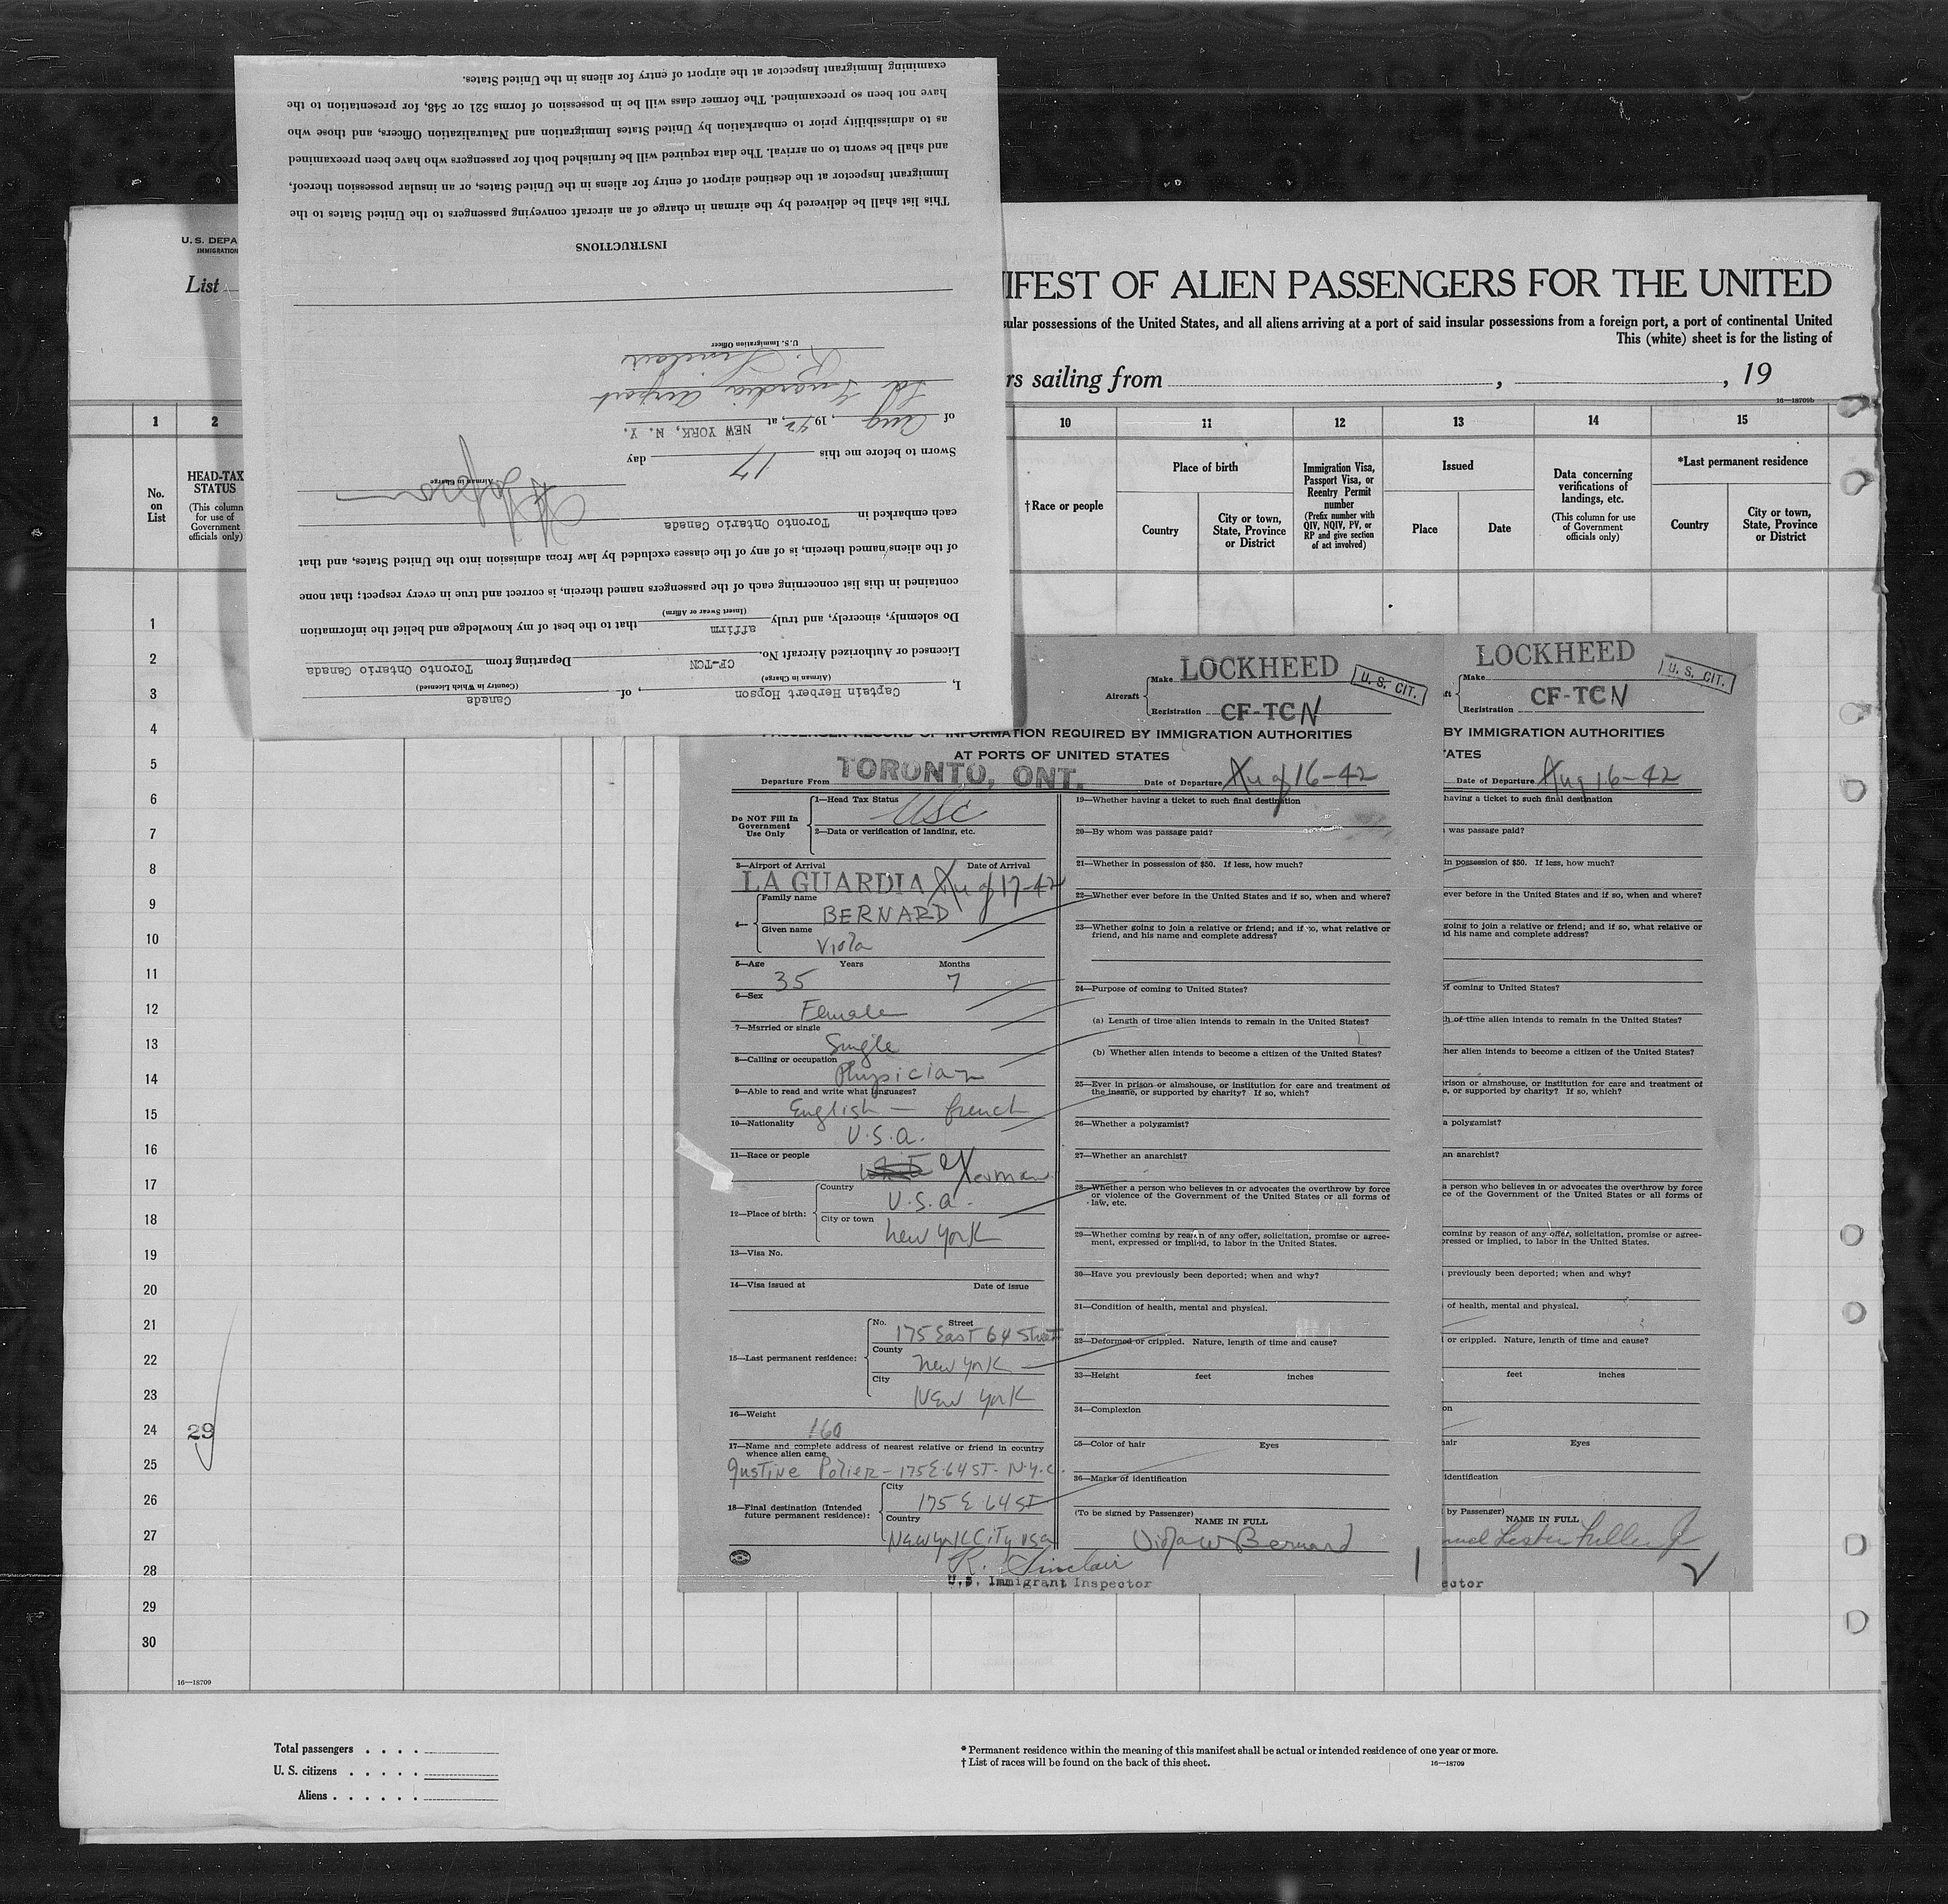 U. S. DEPA
IMMIGRATION
List
IFEST OF ALIEN PASSENGERS FOR THE UNITED
sular possessions of the United States, and all aliens arriving at a port of said insular possessions from a foreign port, a port of continental United
This (white) sheet is for the listing of
rs sailing from , , 19
16—18709b
1 2 10 11 12 13 14 15
No. on List
HEAD-TAX STATUS
(This column for use of Government officials only)
† Race or people
Place of birth
Country
City or town, State, Province or District
Immigration Visa, Passport Visa, or Reentry Permit number
(Prefix number with QIV, NQIV, PV, or RP and give section of act involved)
Issued
Place
Date
Data concerning verifications of landings, etc.
(This column for use of Government officials only)
*Last permanent residence
Country
City or town, State, Province or District
1
2
3
4
5
6
7
8
9
10
11
12
13
14
15
16
17
18
19
20
21
22
23
24
25
26
27
28
29
30
29
16—18709
Total passengers . . . .
U. S. citizens . . . . .
Aliens . . . . . .
* Permanent residence within the meaning of this manifest shall be actual or intended residence of one year or more.
† List of races will be found on the back of this sheet.
16—18709
I, Captain Herbert Hopson, of Canada
(Airman in Charge) (Country in Which Licensed)
Licensed or Authorized Aircraft No. CF-TCN Departing from Toronto Ontario Canada
Do solemnly, sincerely, and truly affirm that to the best of my knowledge and belief the information
(Insert Swear or Affirm)
contained in this list concerning each of the passengers named therein, is correct and true in every respect; that none
of the aliens named therein, is of any of the classes excluded by law from admission into the United States, and that
each embarked in Toronto Ontario Canada
Airman in Charge
Sworn to before me this 17 day
of Aug, 1942, at NEW YORK, N. Y.
La Guardia Airport
R. Sinclair
U. S. Immigration Officer
INSTRUCTIONS
This list shall be delivered by the airman in charge of an aircraft conveying passengers to the United States to the
Immigrant Inspector at the destined airport of entry for aliens in the United States, or an insular possession thereof,
and shall be sworn to on arrival. The data required will be furnished both for passengers who have been preexamined
as to admissibility prior to embarkation by United States Immigration and Naturalization Officers, and those who
have not been so preexamined. The former class will be in possession of forms 521 or 548, for presentation to the
examining Immigrant Inspector at the airport of entry for aliens in the United States.
Aircraft
Make LOCKHEED
Registration CF-TCN
U. S. CIT.
PASSENGER RECORD OF INFORMATION REQUIRED BY IMMIGRATION AUTHORITIES
AT PORTS OF UNITED STATES
Departure From TORONTO, ONT. Date of Departure Aug 16-42
Do NOT Fill In Government Use Only
1—Head Tax Status USC
2—Data or verification of landing, etc.
3—Airport of Arrival Date of Arrival
LA GUARDIA Aug 17-42
4— Family name BERNARD
Given name Viola
5—Age Years Months
35 7
6—Sex Female
7—Married or single Single
8—Calling or occupation Physician
9—Able to read and write what languages?
English — french
10—Nationality U.S.A.
11—Race or people German
12—Place of birth: Country U.S.A.
City or town New York
13—Visa No.
14—Visa issued at Date of issue
15—Last permanent residence: No. Street 175 East 64 Street
County New York
City New York
16—Weight 160
17—Name and complete address of nearest relative or friend in country
whence alien came
Justine Polier - 175 E. 64 ST. N.Y.C.
18—Final destination (Intended future permanent residence): City 175 E. 64 ST
Country New York City USA
19—Whether having a ticket to such final destination
20—By whom was passage paid?
21—Whether in possession of $50. If less, how much?
22—Whether ever before in the United States and if so, when and where?
23—Whether going to join a relative or friend; and if so, what relative or
friend, and his name and complete address?
24—Purpose of coming to United States?
(a) Length of time alien intends to remain in the United States?
(b) Whether alien intends to become a citizen of the United States?
25—Ever in prison or almshouse, or institution for care and treatment of
the insane, or supported by charity? If so, which?
26—Whether a polygamist?
27—Whether an anarchist?
28—Whether a person who believes in or advocates the overthrow by force
or violence of the Government of the United States or all forms of
law, etc.
29—Whether coming by reason of any offer, solicitation, promise or agree-
ment, expressed or implied, to labor in the United States.
30—Have you previously been deported; when and why?
31—Condition of health, mental and physical.
32—Deformed or crippled. Nature, length of time and cause?
33—Height feet inches
34—Complexion
35—Color of hair Eyes
36—Marks of identification
(To be signed by Passenger) NAME IN FULL
Viola W Bernard
R. Sinclair
U.S. Immigrant Inspector
1
ft
Make LOCKHEED
Registration CF-TCN
U. S. CIT.
BY IMMIGRATION AUTHORITIES
ATES
Date of Departure Aug 16-42
having a ticket to such final destination
was passage paid?
in possession of $50. If less, how much?
ever before in the United States and if so, when and where?
going to join a relative or friend; and if so, what relative or
d his name and complete address?
of coming to United States?
h of time alien intends to remain in the United States?
her alien intends to become a citizen of the United States?
rison or almshouse, or institution for care and treatment of
e, or supported by charity? If so, which?
a polygamist?
an anarchist?
a person who believes in or advocates the overthrow by force
ce of the Government of the United States or all forms of
coming by reason of any offer, solicitation, promise or agree-
pressed or implied, to labor in the United States.
previously been deported; when and why?
of health, mental and physical.
or crippled. Nature, length of time and cause?
feet inches
on
hair Eyes
identification
by Passenger) NAME IN FULL
muel Lester Fuller Jr
ector
2